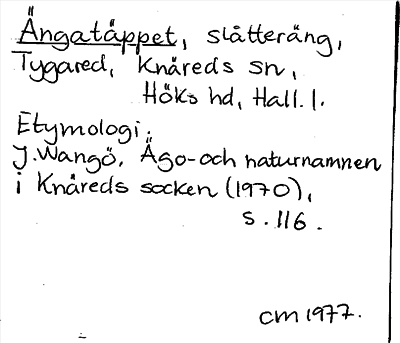 Ängatäppet, slåtteräng,
Tygared, Knäreds sn,
Höks hd, Hall. l.
Etymologi:
J. Wangö, Ägo- och naturnamnen
i Knäreds socken (1970),
s. 116.
CM 1977.